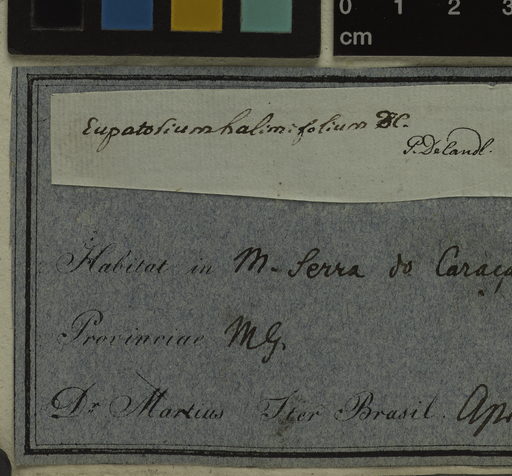 0 1 2 3
cm
Eupatorium halimifolium DC.
P. DeCandl.
Habitat in M. Serra do Caraça
Provinciae MG.
Dr Martius Iter Brasil. Apr